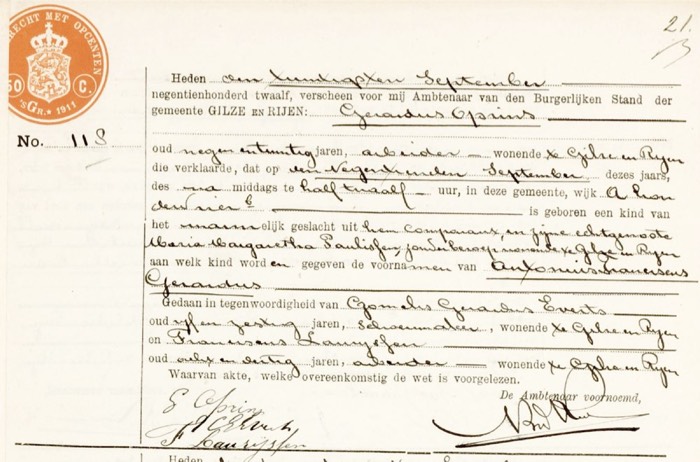 21.
RECHT MET OPCENTEN
50 C.
'sGr. * 1911
Heden den twintigsten September
negentienhonderd twaalf, verscheen voor mij Ambtenaar van den Burgerlijken Stand der
gemeente GILZE EN RIJEN: Gerardus Oprins
No. 118
oud negenentwintig jaren, arbeider wonende te Gilze en Rijen
die verklaarde, dat op den Negentienden September dezes jaars,
des na middags te half twaalf uur, in deze gemeente, wijk A hon
derd vier b is geboren een kind van
het mannelijk geslacht uit hem comparant, en zijne echtgenoote
Maria Margaretha Paulissen, zonder beroep, wonende te Gilze en Rijen
aan welk kind worden gegeven de voornamen van Antonius Franciscus
Gerardus
Gedaan in tegenwoordigheid van Cornelis Gerardus Everts
oud vijf en zestig jaren, schoenmaker, wonende te Gilze en Rijen
en Franciscus Laurijssen
oud acht en dertig jaren, arbeider wonende te Gilze en Rijen
Waarvan akte, welke overeenkomstig de wet is voorgelezen.
De Ambtenaar voornoemd,
G Oprins
C G Everts
F Laurijssen
Heden